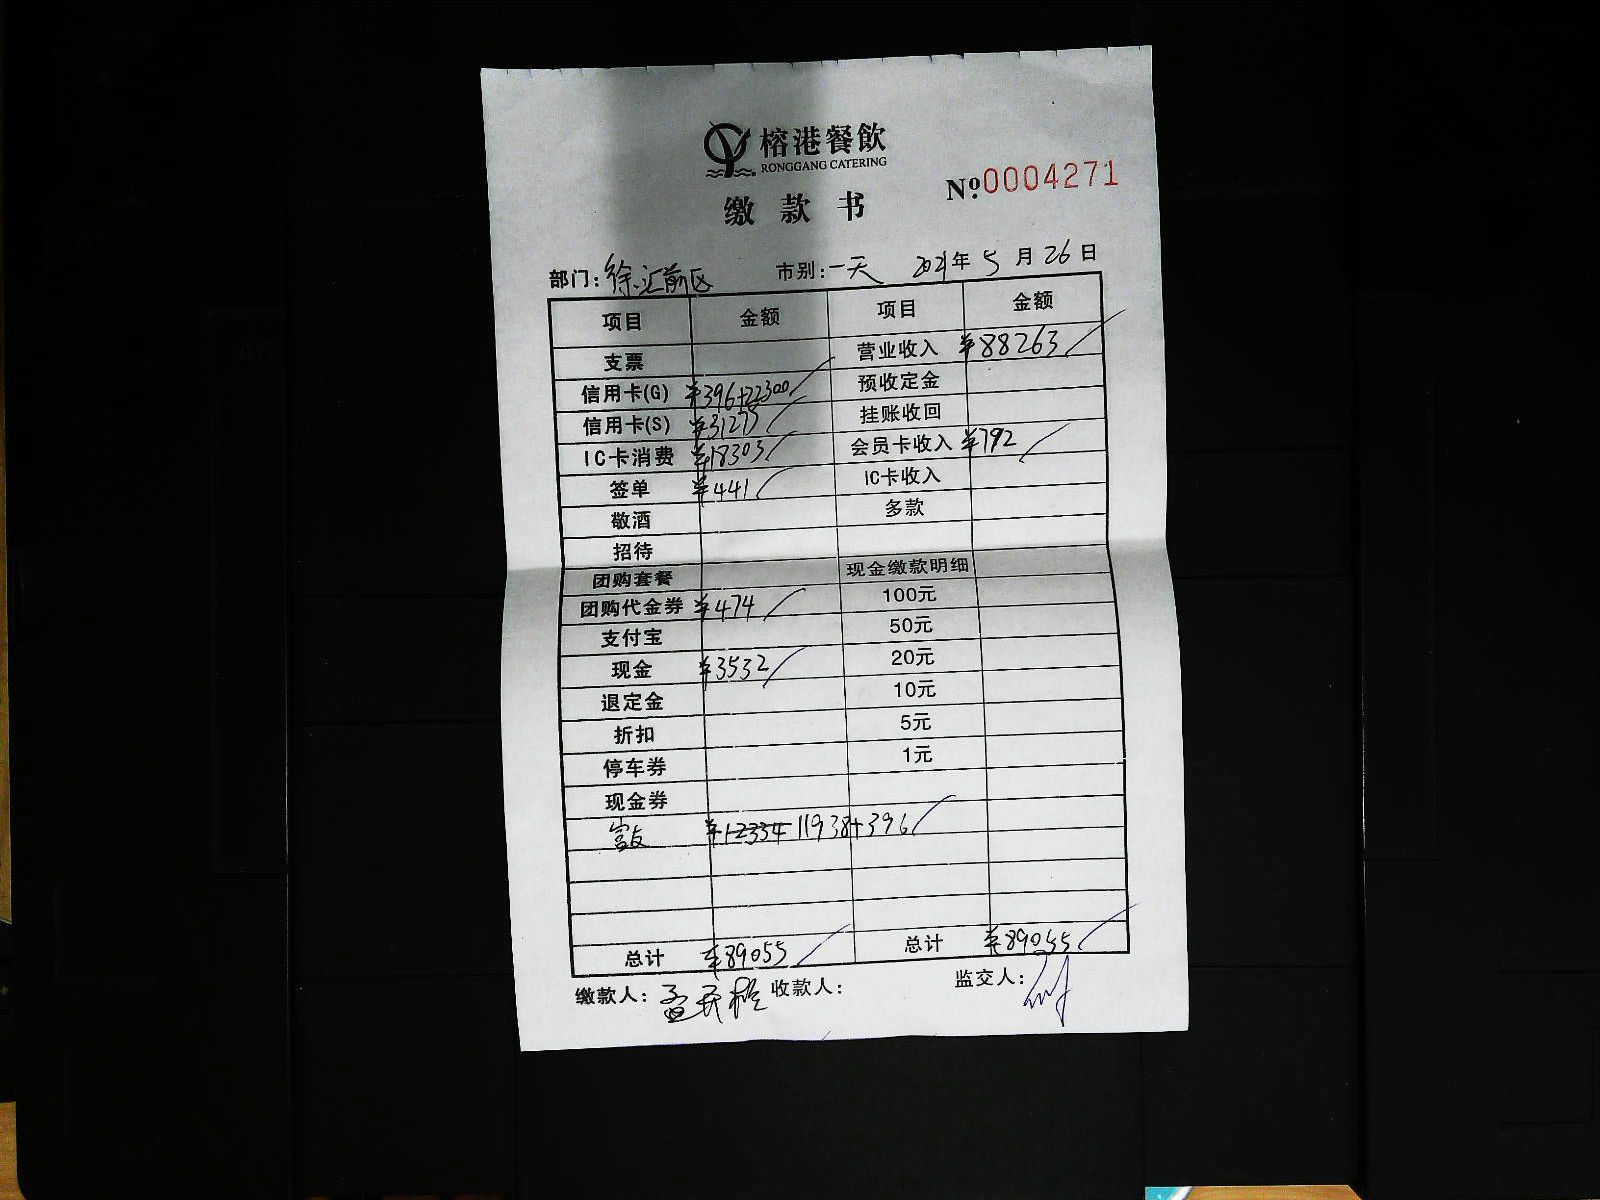 榕港餐飲
RONGGANG CATERING
缴款书
Nº.0004271
部门:徐汇前区 市别:一天 2021年5月26日
项目 金额 项目 金额
支票 营业收入 ¥88263
信用卡(G) ¥396+22300 预收定金
信用卡(S) ¥31275 挂账收回
IC卡消费 ¥18303 会员卡收入 ¥792
签单 ¥441 IC卡收入
敬酒 多款
招待
团购套餐 现金缴款明细
团购代金券 ¥474 100元
支付宝 50元
现金 ¥3532 20元
退定金 10元
折扣 5元
停车券 1元
现金券
¥12334 11938+396
总计 ¥89055 总计 ¥89055
缴款人: 收款人: 监交人: